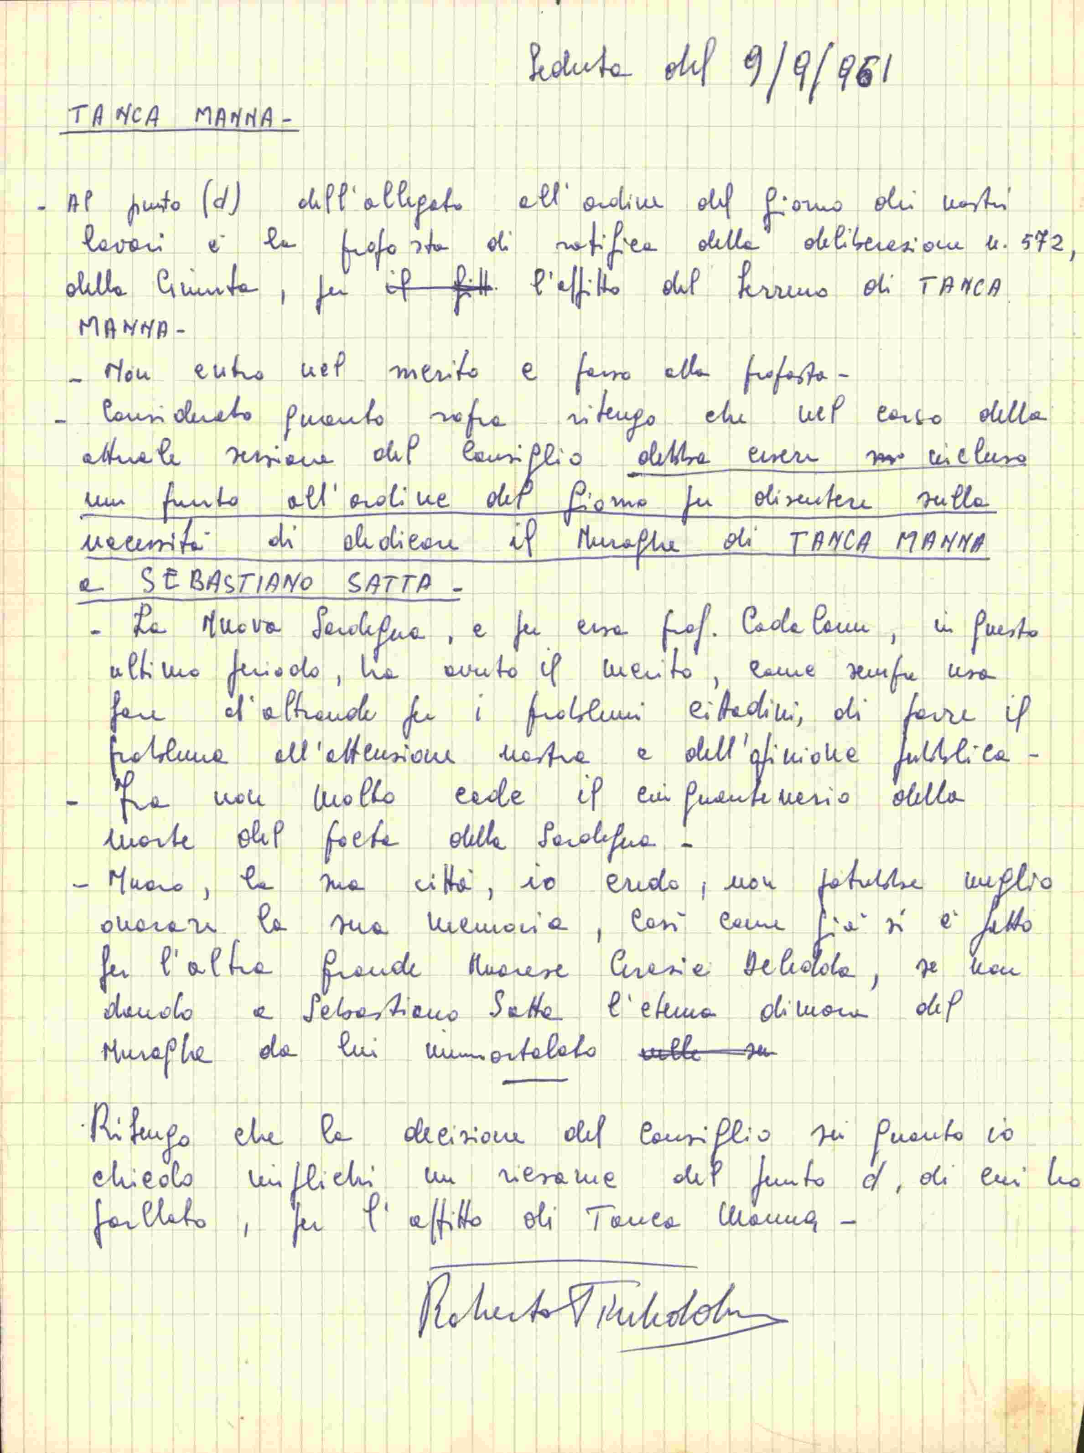 Seduta del 9/9/961
TANCA MANNA -
- Al punto (d) dell'allegato all'ordine del giorno dei nostri
lavori è la proposta di ratifica della deliberazione n. 572,
della Giunta, per il fitt. l'affitto del terreno di TANCA
MANNA -
- Non entro nel merito e passo alla proposta -
- Considerato quanto sopra ritengo che nel corso della
attuale sessione del Consiglio debba essere incluso
un punto all'ordine del giorno per discutere sulla
necessità di dedicare il Nuraghe di TANCA MANNA
a SEBASTIANO SATTA -
- La Nuova Sardegna, e per essa prof. Cada, in questo
ultimo periodo, ha avuto il merito, come sempre usa
fare d'altronde per i problemi cittadini, di porre il
problema all'attenzione nostra e dell'opinione pubblica -
- Fra non molto cade il cinquantenario della
morte del poeta della Sardegna -
- Nuoro, la sua città, io credo, non potrebbe meglio
onorare la sua memoria, così come già si è fatto
per l'altra grande Nuorese Grazia Deledda, se non
dando a Sebastiano Satta l'eterna dimora del
Nuraghe da lui immortalato nelle su
Ritengo che la decisione del Consiglio su quanto io
chiedo implichi un riesame del punto d, di cui ho
parlato, per l'affitto di Tanca Manna -
Roberto